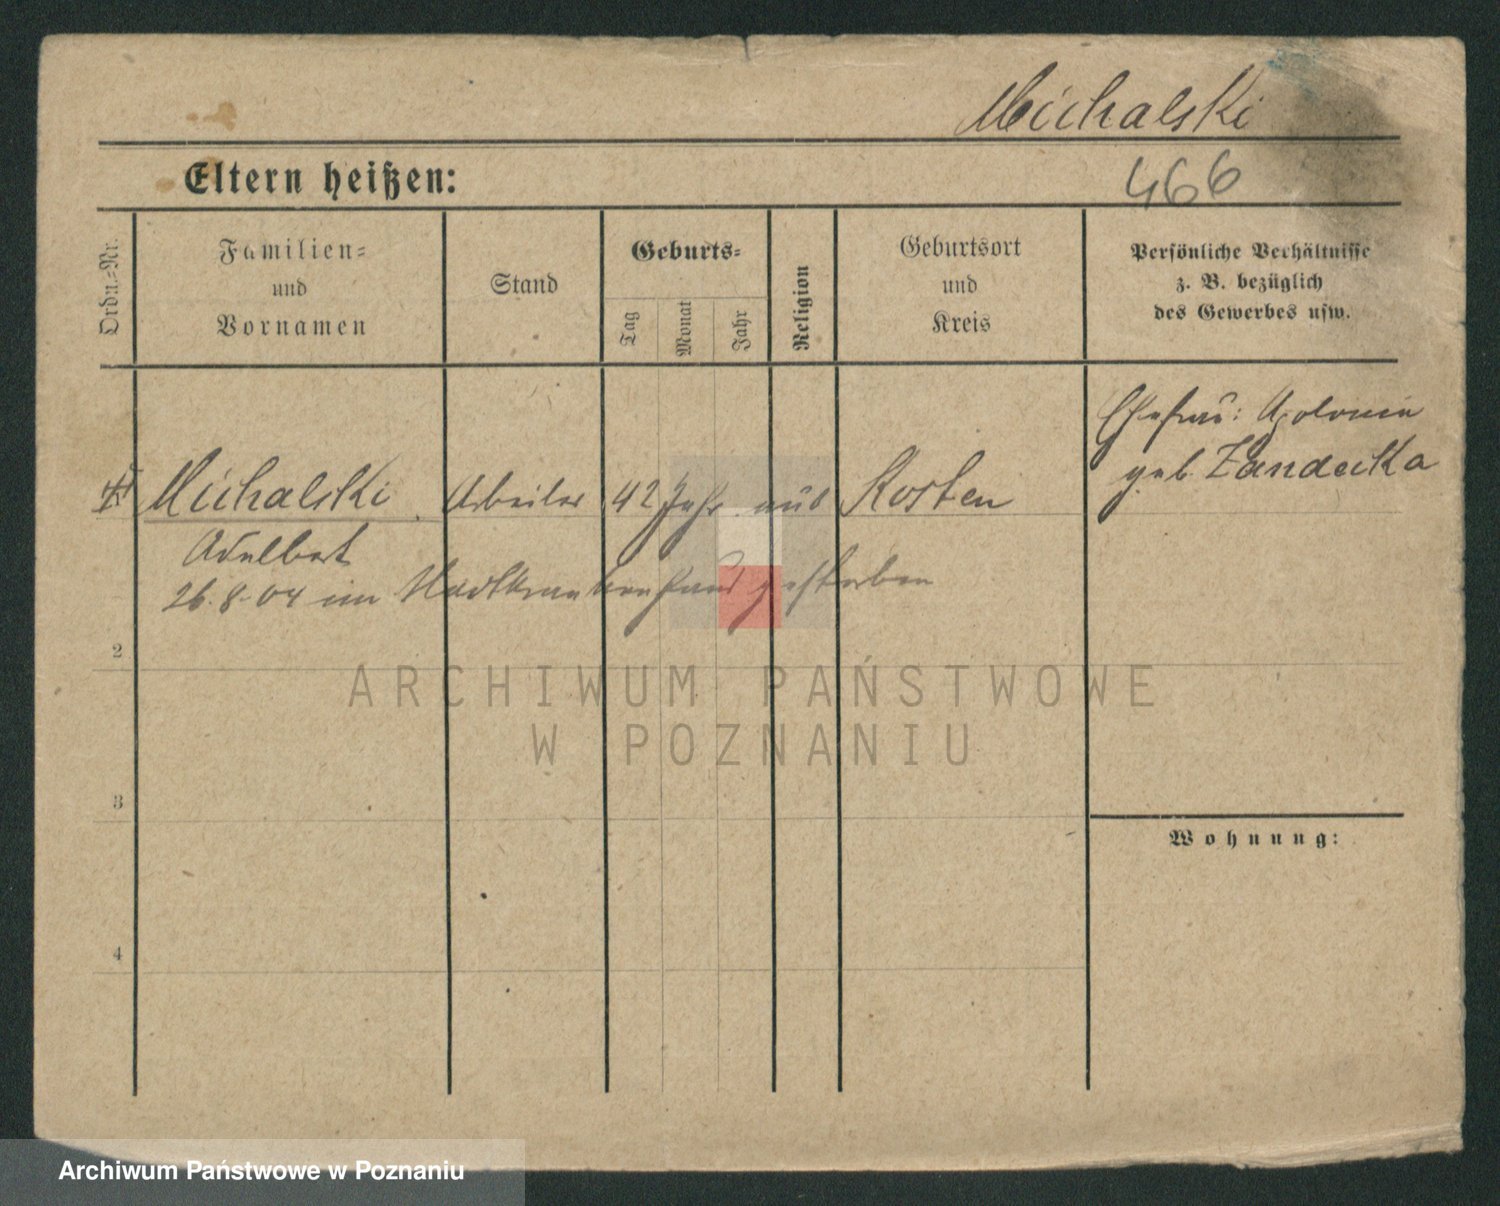 Michalski
466
Eltern heißen:
Ordn.-Nr.
Familien-
und
Vornamen
Stand
Geburts-
Tag
Monat
Jahr
Religion
Geburtsort
und
Kreis
Persönliche Verhältnisse
z. B. bezüglich
des Gewerbes usw.
Ehefrau: Apolonia
geb. Zandecka
Michalski Arbeiter 42 Jahr aus Kosten
Adalbert
26.8.04 im Stadtkrankenhaus gestorben
2
ARCHIWUM PAŃSTWOWE
W POZNANIU
3
Wohnung:
4
Archiwum Państwowe w Poznaniu